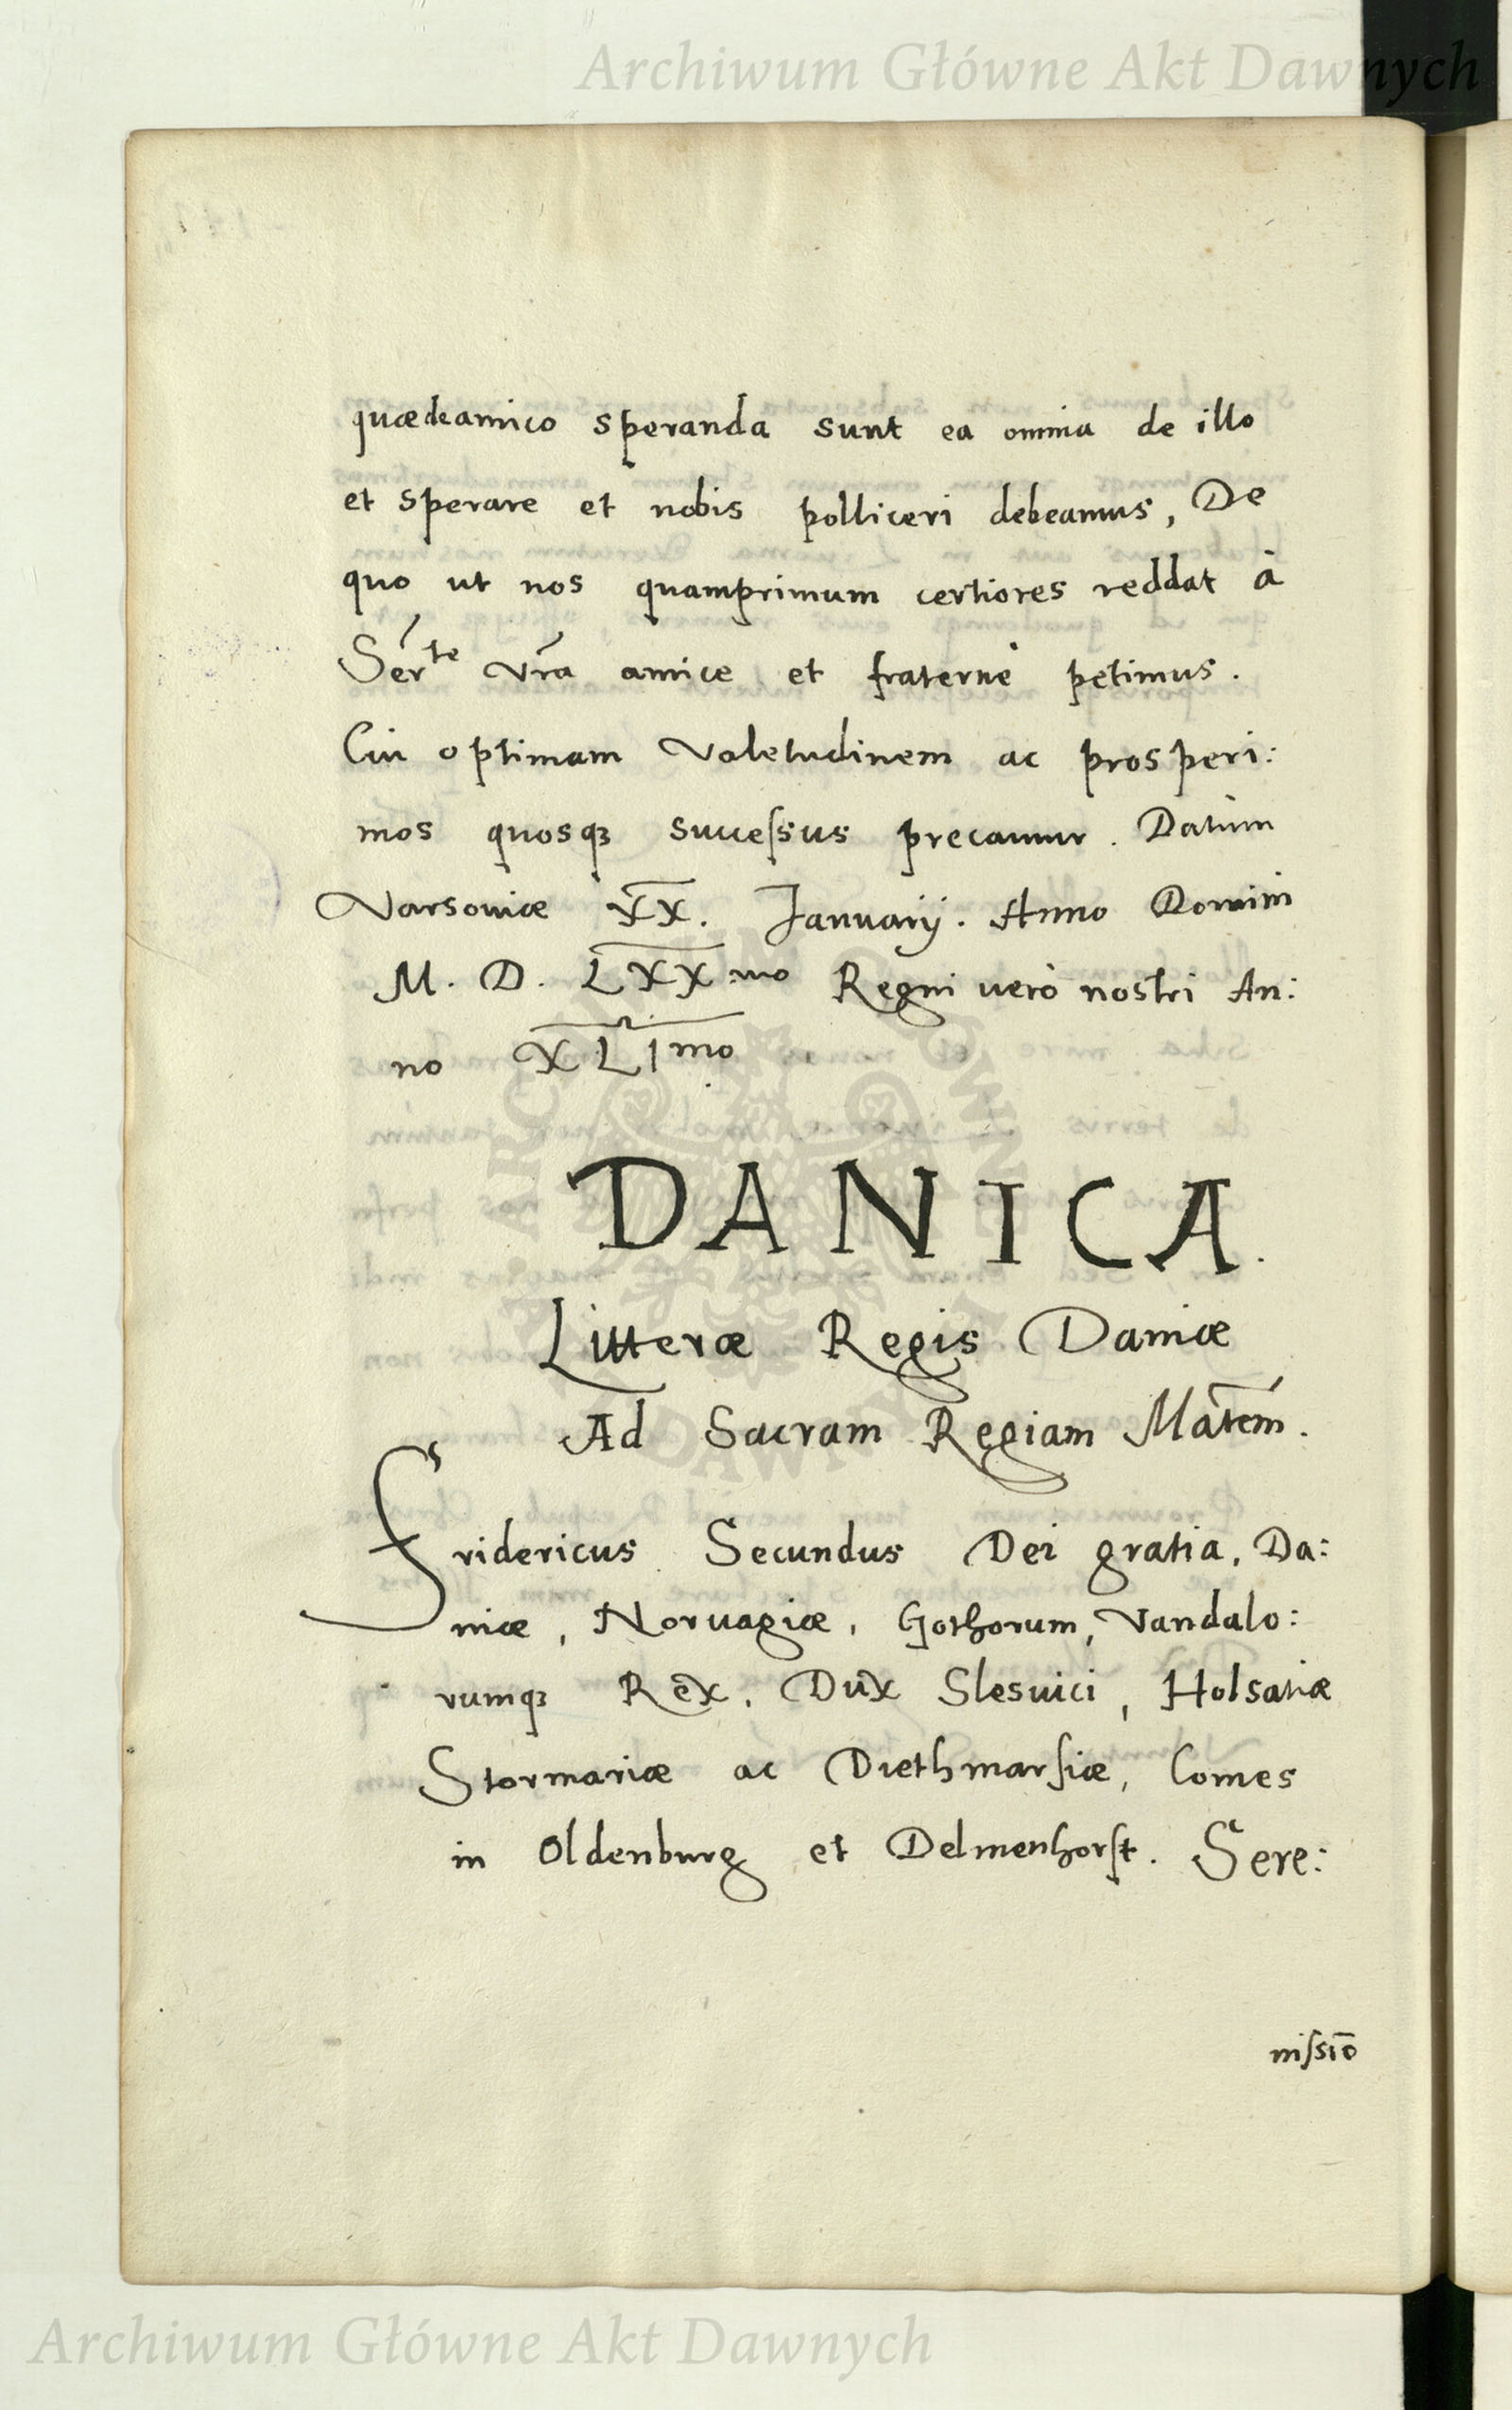 Archiwum Główne Akt Dawnych
quæ de amico speranda sunt ea omnia de illo
et sperare et nobis polliceri debeamus, De
quo ut nos quamprimum certiores reddat à
Serᵗᵉ Vr̃a amice et fraternè petimus.
Cui optimam Valetudinem ac prosperi:
mos quosqꝫ succeſsus precamur. Datum
Varsoviæ XX. Januarij. Anno Domini
M. D. LXXmo Regni verò nostri An:
no XLImo
DANICA.
Litteræ Regis Daniæ
Ad Sacram Regiam Mat̃em.
Fridericus Secundus Dei gratia, Da:
niæ, Noruagiæ, Gothorum, Vandalo:
rumqꝫ Rex, Dux Slesuici, Holsatiæ
Stormariæ ac Diethmarſiæ, Comes
in Oldenburg et Delmenhorſt. Sere:
niſsiō
Archiwum Główne Akt Dawnych